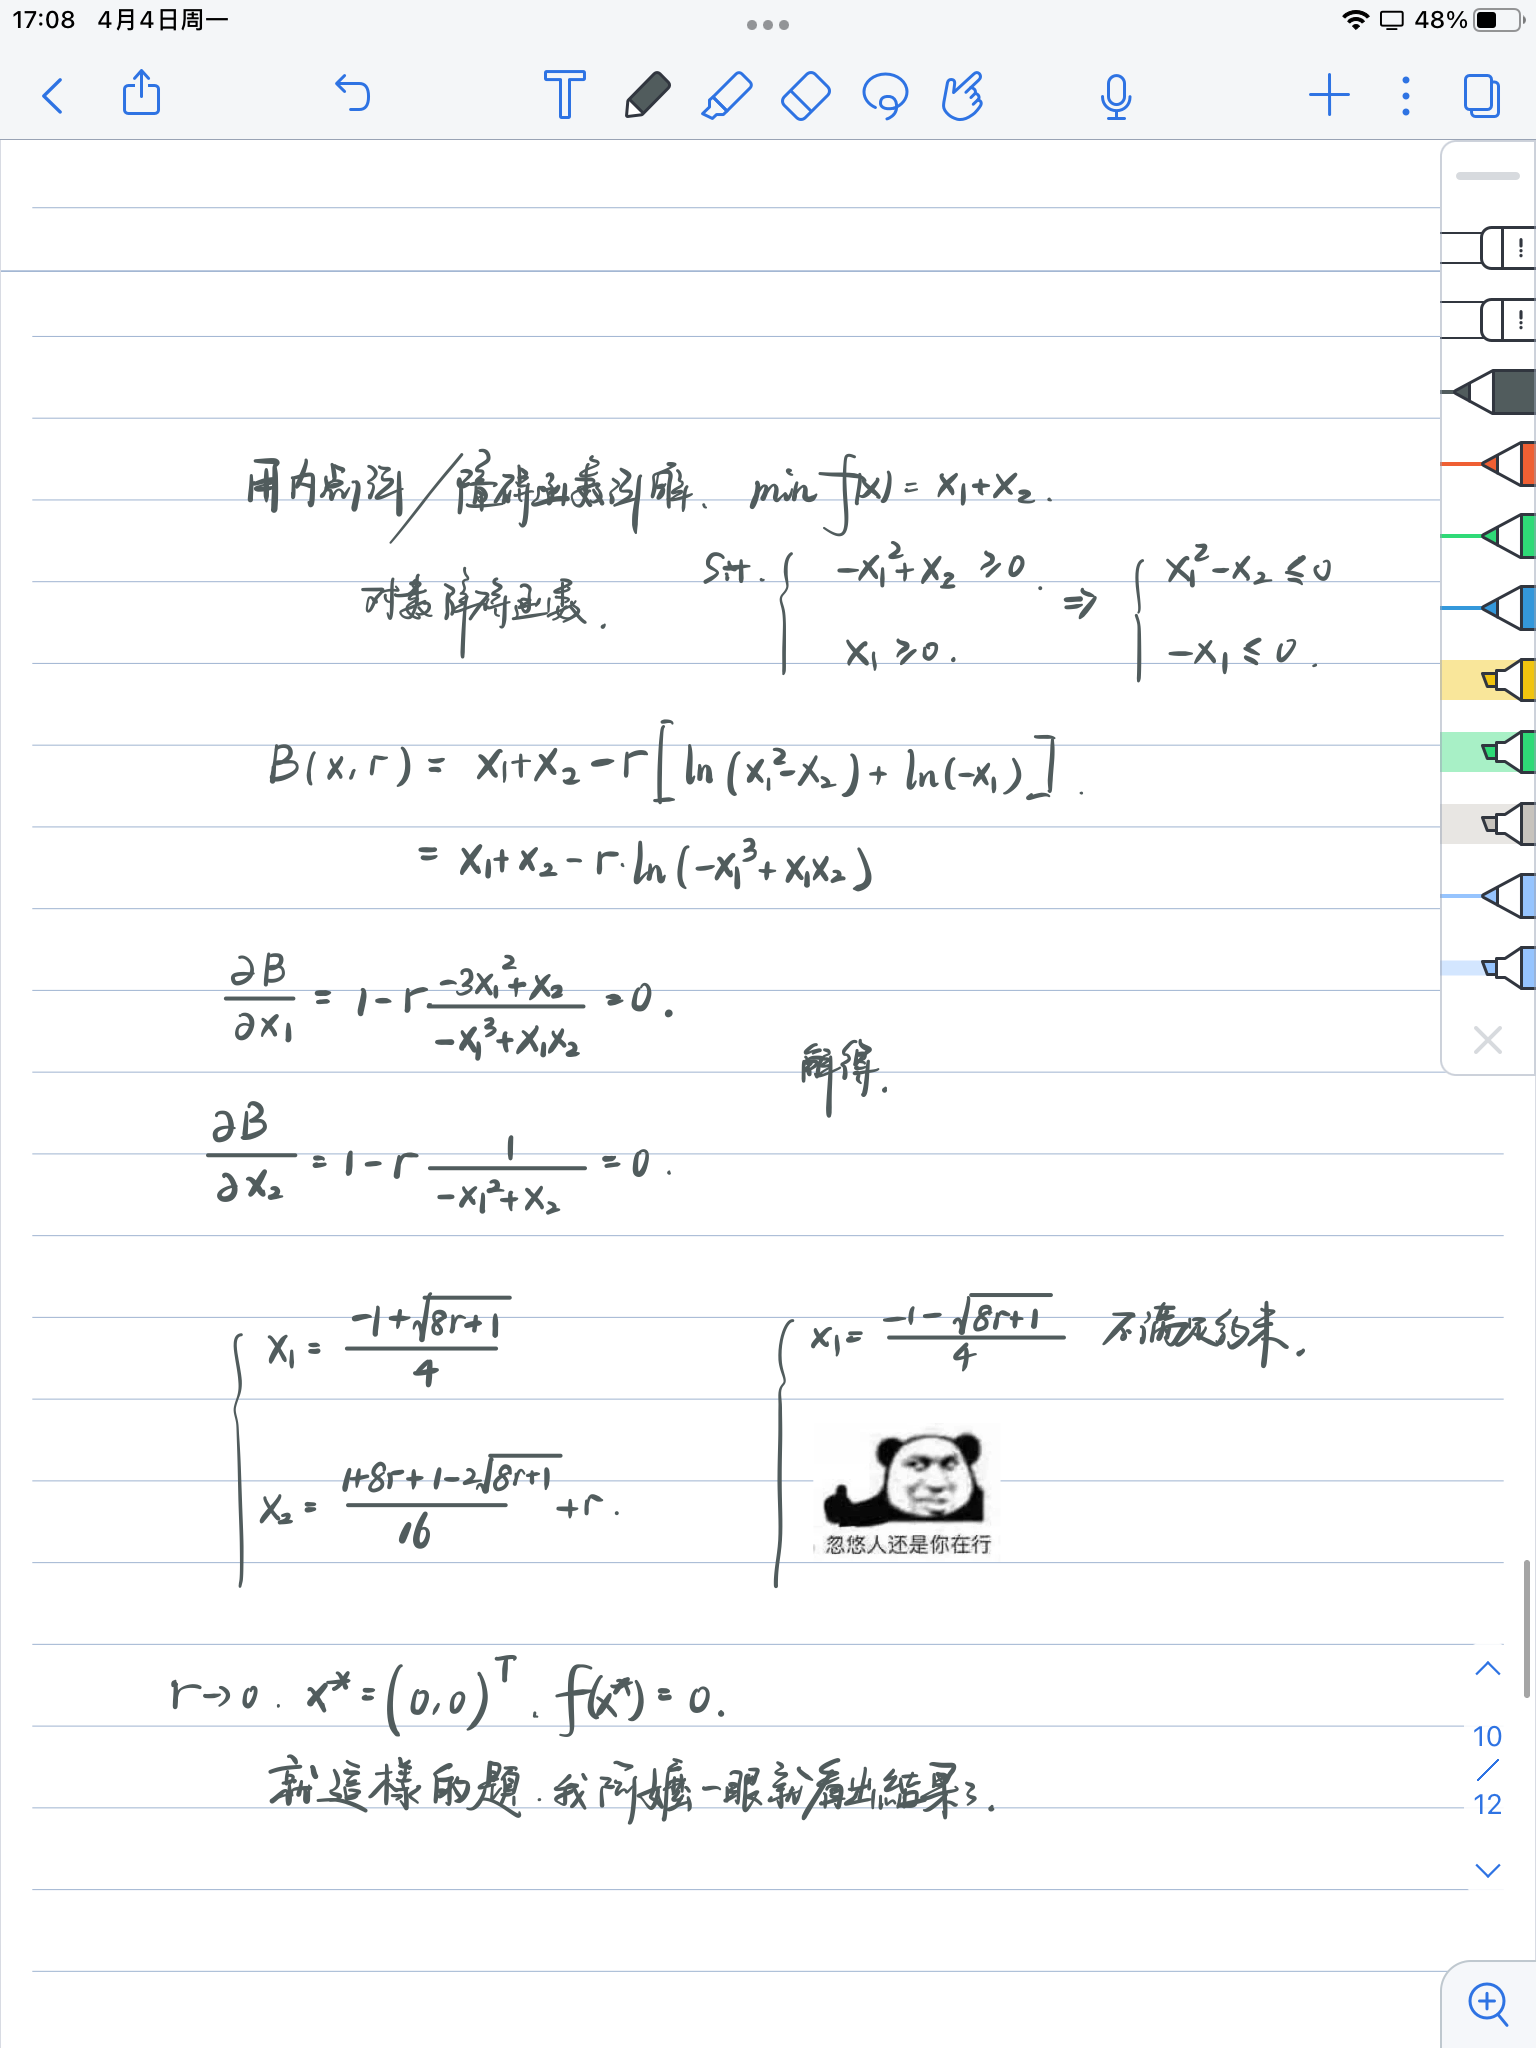 17:08 4月4日周一
48%
用内点法/障碍函数法解. min f(x) = x₁+x₂.
对数障碍函数.
s.t. { -x₁²+x₂ ≥0. ⇒ { x₁²-x₂ ≤0
x₁ ≥0. -x₁ ≤ 0.
B(x,r) = x₁+x₂-r[ln(x₁²-x₂)+ln(-x₁)].
= x₁+x₂-r·ln(-x₁³+x₁x₂)
∂B/∂x₁ = 1-r·(-3x₁²+x₂)/(-x₁³+x₁x₂) =0.
解得.
∂B/∂x₂ = 1-r 1/(-x₁²+x₂) =0.
{ x₁ = (-1+√(8r+1))/4
x₂ = (1+8r+1-2√(8r+1))/16 +r.
{ x₁= (-1-√(8r+1))/4 不满足约束.
忽悠人还是你在行
r→0. x*=(0,0)ᵀ. f(x*)=0.
就這樣的題.我阿嬤一眼就看出結果了.
10
/
12